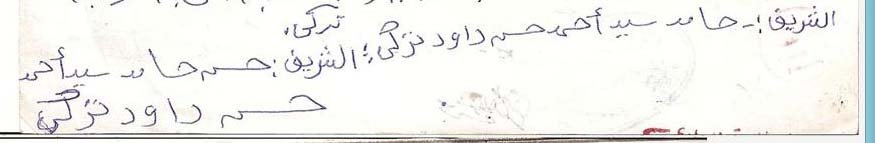 الشريف :- حامد سيد أحمد حسن داود تركي،
تركي، الشريف : حسن حامد سيد أحمد
حسن داود تركي